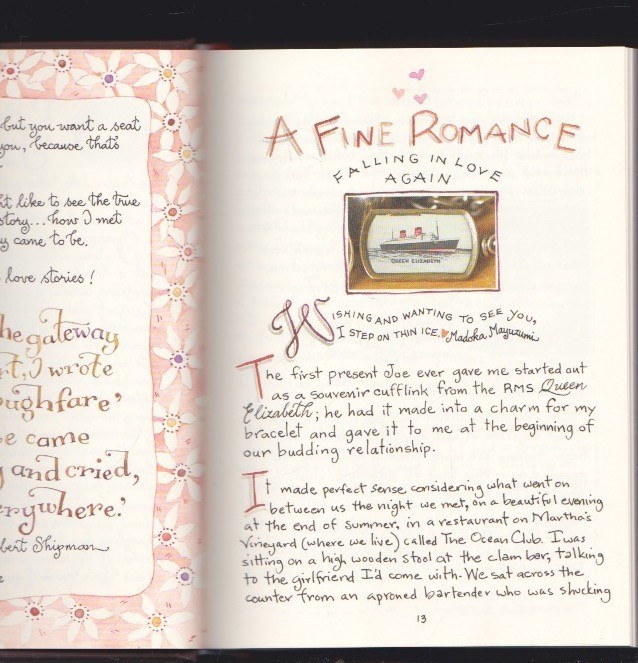 but you want a seat
you, because that's
ht like to see the true
story... how I met
y came to be.
love stories!
he gateway
rt, I wrote
oughfare'
e came
g and cried,
erywhere.'
bert Shipman
A FINE ROMANCE
FALLING IN LOVE
AGAIN
QUEEN ELIZABETH
WISHING AND WANTING TO SEE YOU,
I STEP ON THIN ICE. Madoka Mayuzumi
The first present Joe ever gave me started out
as a souvenir cufflink from the RMS Queen
Elizabeth; he had it made into a charm for my
bracelet and gave it to me at the beginning of
our budding relationship.
It made perfect sense considering what went on
between us the night we met, on a beautiful evening
at the end of summer, in a restaurant on Martha's
Vineyard (where we live) called The Ocean Club. I was
sitting on a high wooden stool at the clam bar, talking
to the girlfriend I'd come with. We sat across the
counter from an aproned bartender who was shucking
13